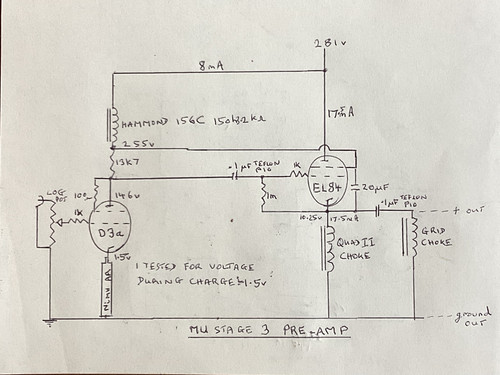 281v
8mA
HAMMOND 156C 150h 3.2kΩ
17.5mA
255v
13K7
.1µF TEFLON
PIO
1K
EL84
20µF
LOG
POT
100
146v
1m
.1µF TEFLON
PIO
+ OUT
1K
10.25v
17.5mA
D3a
QUAD II
CHOKE
GRID
CHOKE
1.5v
NiMH AA
1 TESTED FOR VOLTAGE
DURING CHARGE 1.5v
ground
OUT
MU STAGE 3 PRE-AMP